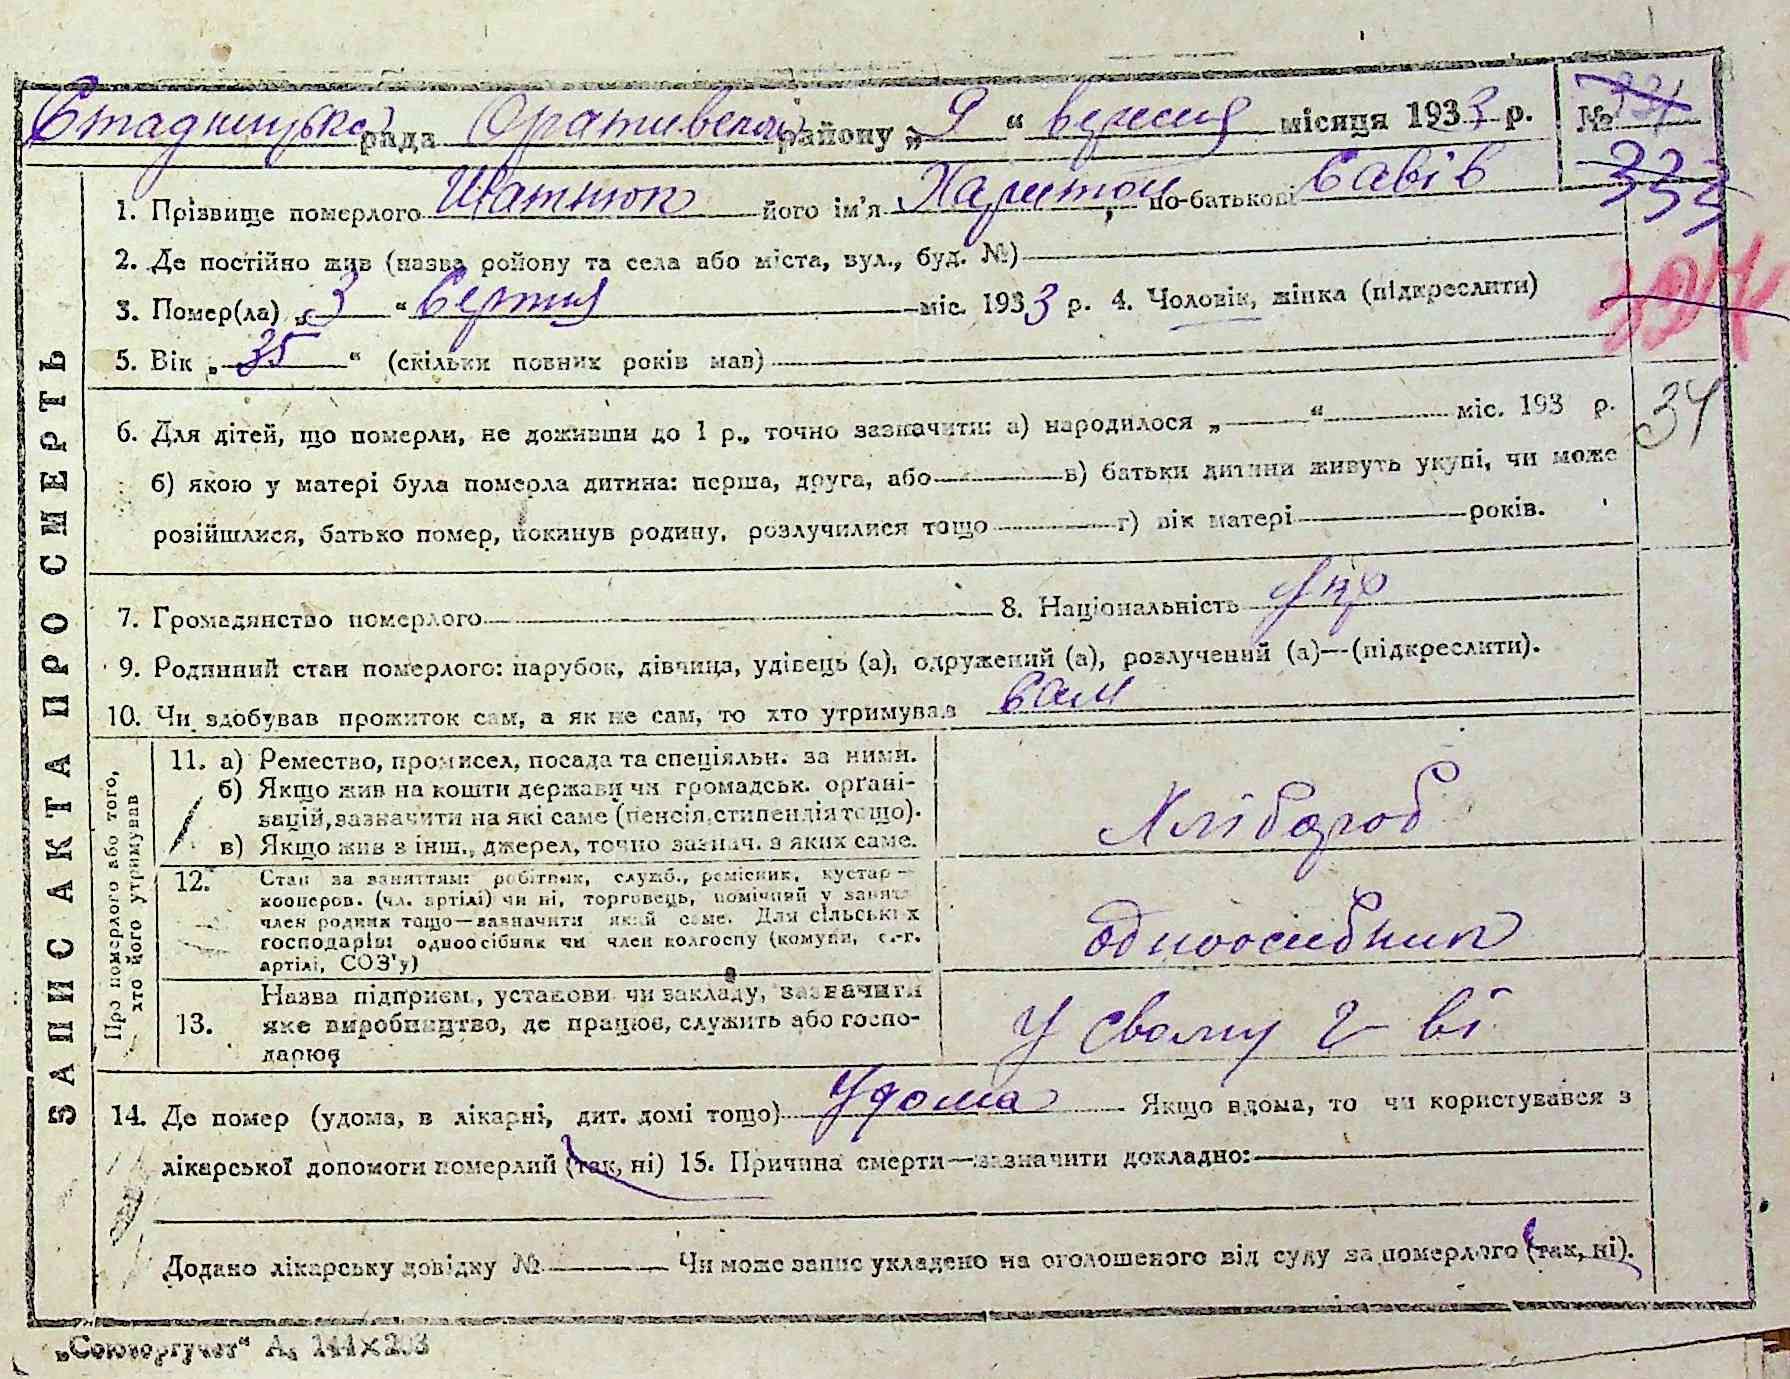 Стадницька рада Оратівської району „9“ вересня місяця 1933 р. № 331
333
334
34
ЗАПИС АКТА ПРО СМЕРТЬ
1. Прізвище померлого Шатнюк його ім'я Харитон, по-батькові Савів
2. Де постійно жив (назва району та села або міста, вул., буд. №)
3. Помер(ла) „3“ Серпня міс. 1933 р. 4. Чоловік, жінка (підкреслити)
5. Вік „35“ (скільки повних років мав)
6. Для дітей, що померли, не доживши до 1 р., точно зазначити: а) народилося „ “ міс. 193 р.
б) якою у матері була померла дитина: перша, друга, або в) батьки дитини живуть укупі, чи може
розійшлися, батько помер, покинув родину, розлучилися тощо г) вік матері років.
7. Громадянство померлого 8. Національність Укр
9. Родинний стан померлого: парубок, дівчина, удівець (а), одружений (а), розлучений (а)—(підкреслити).
10. Чи здобував прожиток сам, а як не сам, то хто утримував сам
Про померлого або того,
хто його утримував
11. а) Ремество, промисел, посада та спеціяльн. за ними.
б) Якщо жив на кошти держави чи громадськ. орґані-
зацій, зазначити на які саме (пенсія, стипендія тощо).
в) Якщо жив з інш., джерел, точно зазнач. з яких саме.
Хлібороб
12. Стан за заняттям: робітник, служб., ремісник, кустар—
кооперов. (чл. артілі) чи ні, торговець, помічний у занятт
член родини тощо—зазначити який саме. Для сільських
господарів: одноосібник чи член колгоспу (комуни, с.-г.
артілі, СОЗ'у)
одноосибник
13. Назва підприєм., установи чи закладу, зазначити
яке виробництво, де працює, служить або госпо-
дарює
У свому г ві
14. Де помер (удома, в лікарні, дит. домі тощо) Удома Якщо вдома, то чи користувався з
лікарської допомоги померлий (так, ні) 15. Причина смерти—зазначити докладно:
Додано лікарську довідку № Чи може запис укладено на оголошеного від суду за померлого (так, ні).
„Союзоргучет“ А₅ 144×203